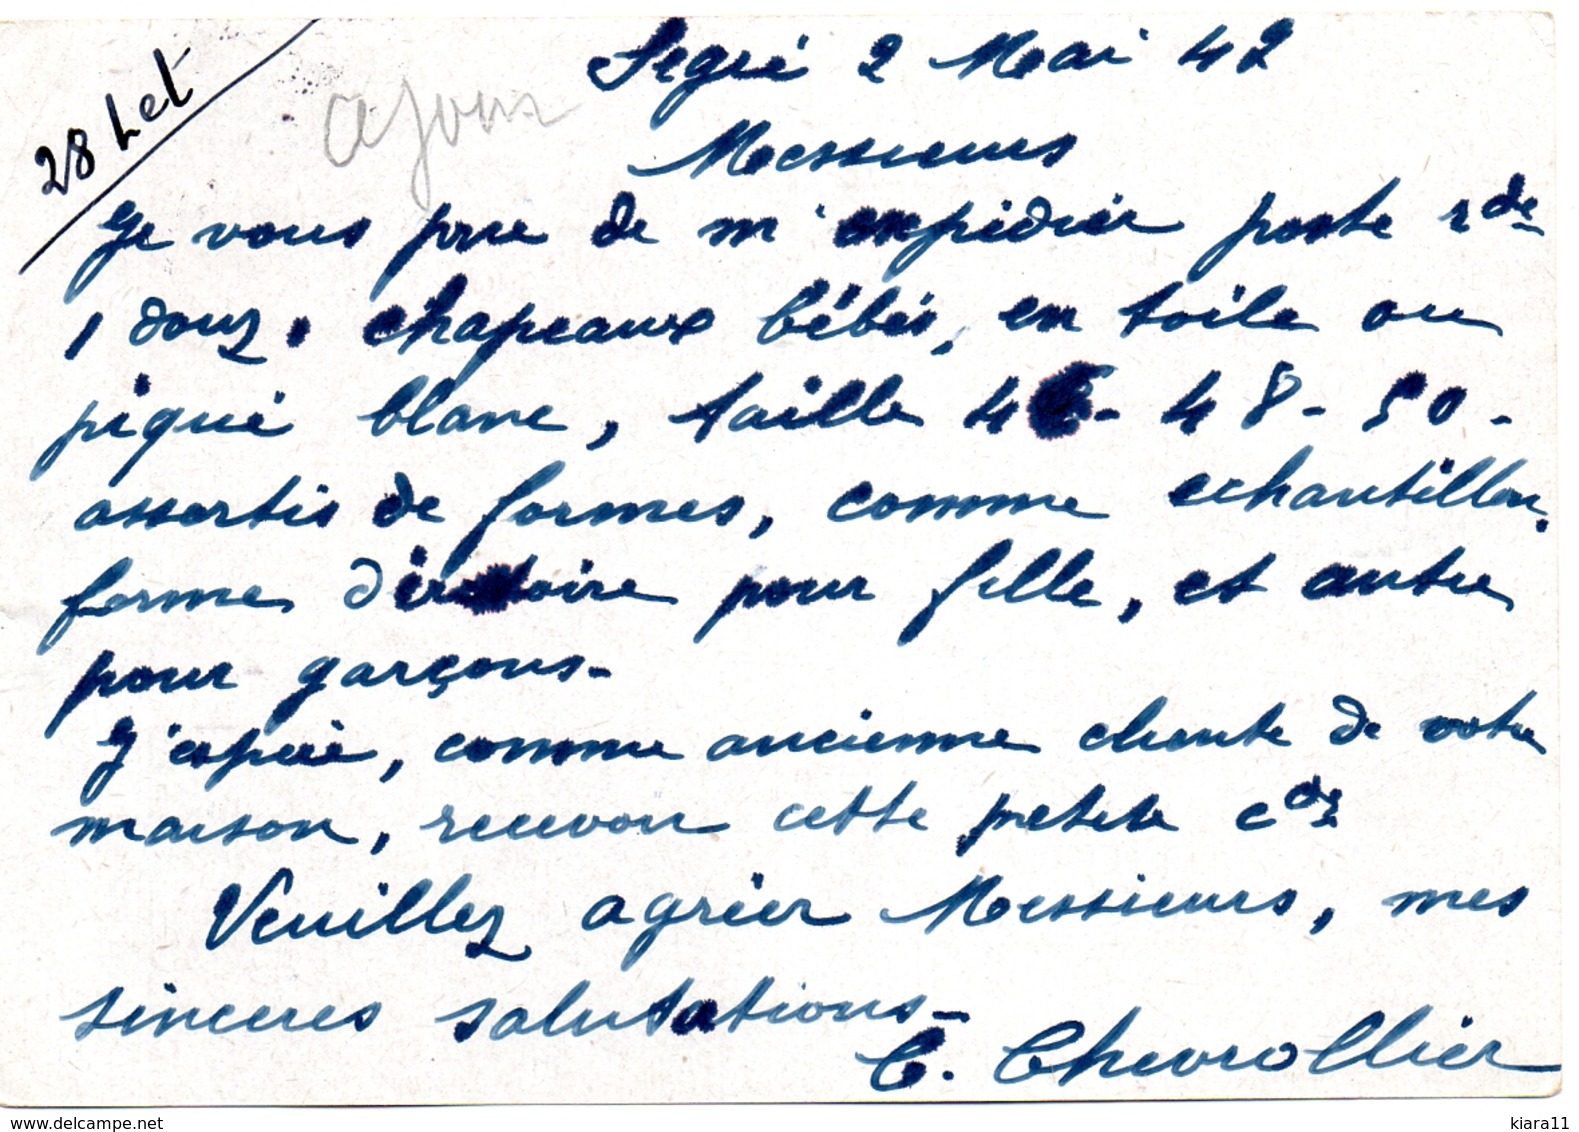 28 Let
ajour
Segré 2 Mai 42
Messieurs
Je vous prie de m'expédier poste rde
1 douz. chapeaux bébés, en toile ou
piqué blanc, taille 46 - 48 - 50 -
assortis de formes, comme echantillon,
forme directoire pour fille, et autre
pour garçons -
J'espère, comme ancienne cliente de votre
maison, recevoir cette petite cde
Veuillez agréer Messieurs, mes
sincères salutations -
C. Chevrollier
www.delcampe.net
kiara11